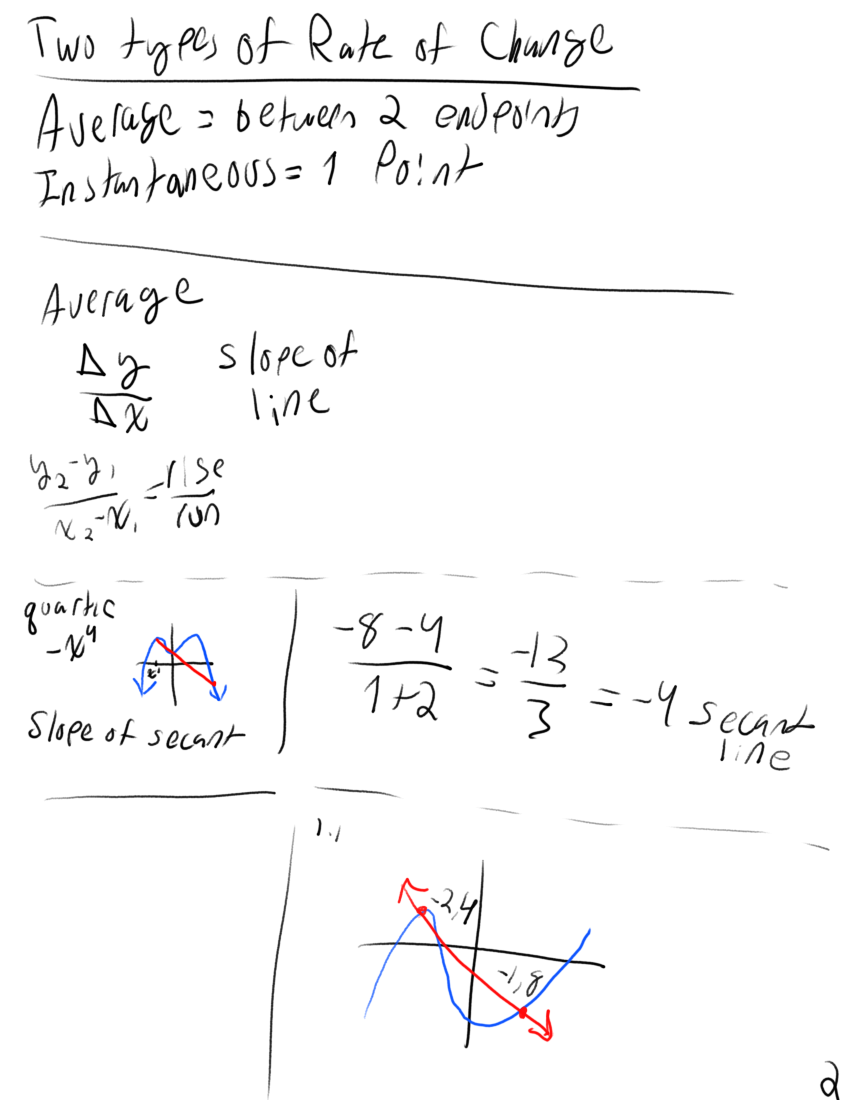 Two types of Rate of Change
Average = between 2 endpoints
Instantaneous = 1 Point
Average
Δy/Δx slope of line
y₂-y₁/x₂-x₁ = rise/run
quartic
-x⁴
Slope of secant
-8-4/1+2 = -13/3 = -4 secant line
1.1
-2,4
-1,8
2